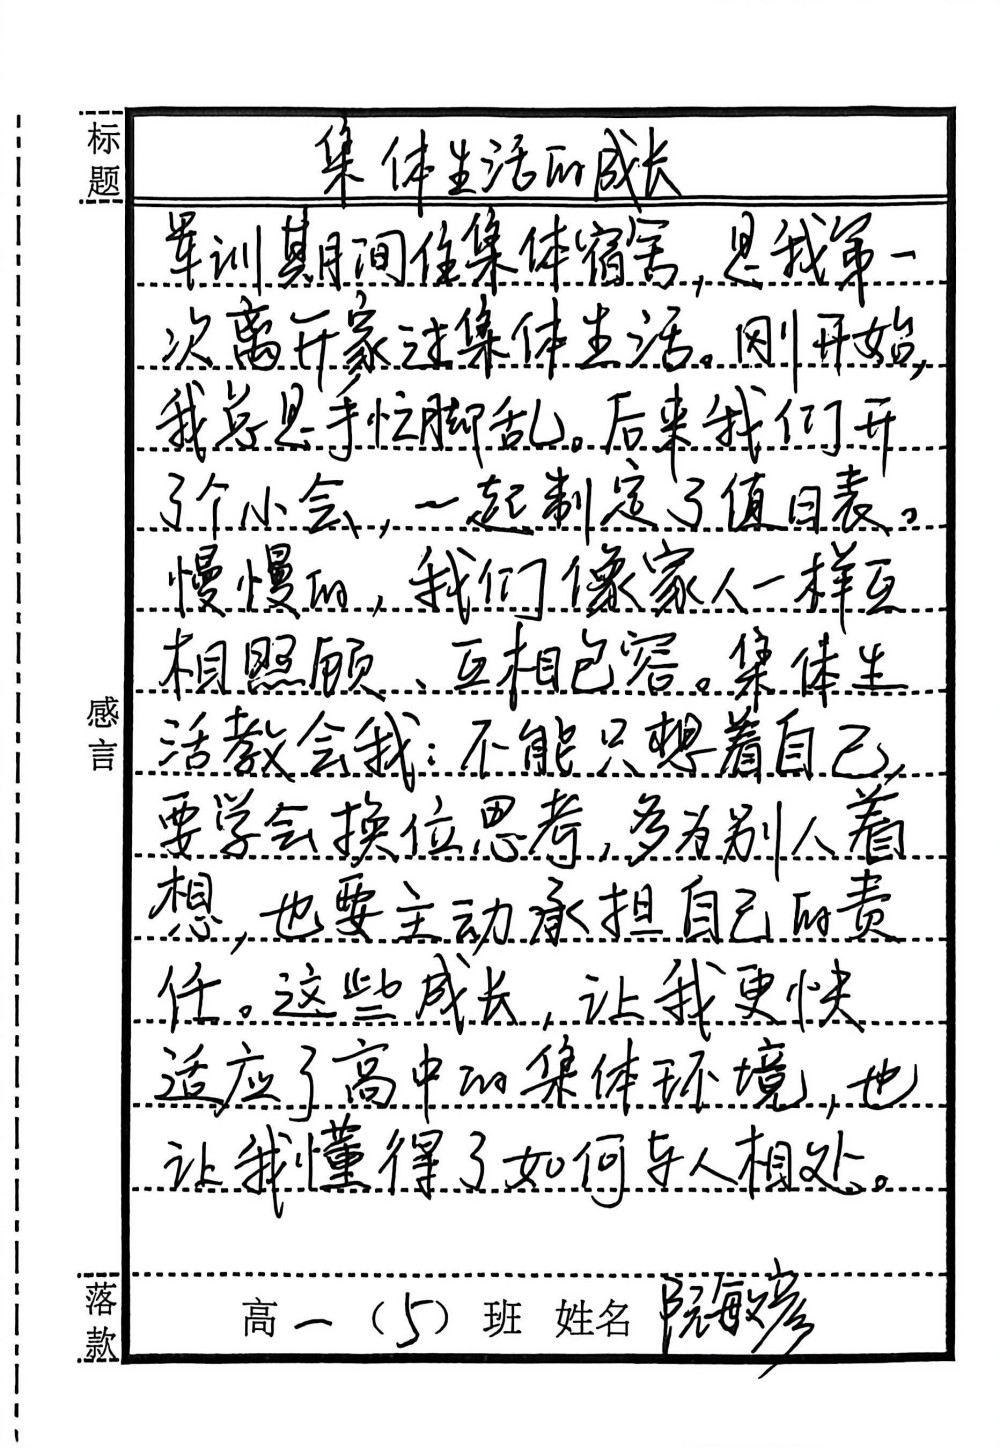 标题
集体生活的成长
军训期间住集体宿舍,是我第一
次离开家过集体生活。刚开始,
我总是手忙脚乱。后来我们开
了个小会,一起制定了值日表。
慢慢的,我们像家人一样互
相照顾、互相包容。集体生
活教会我:不能只想着自己,
要学会换位思考,多为别人着
想,也要主动承担自己的责
任。这些成长,让我更快
适应了高中的集体环境,也
让我懂得了如何与人相处。
感言
落款
高一(5)班 姓名 阮敏彦